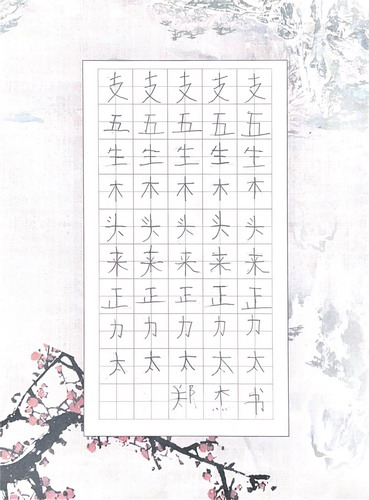 支支支支支
五五五五五
生生生生生
木木木木木
头头头头头
来来来来来
正正正正正
力力力力力
太太太太太
郑杰书